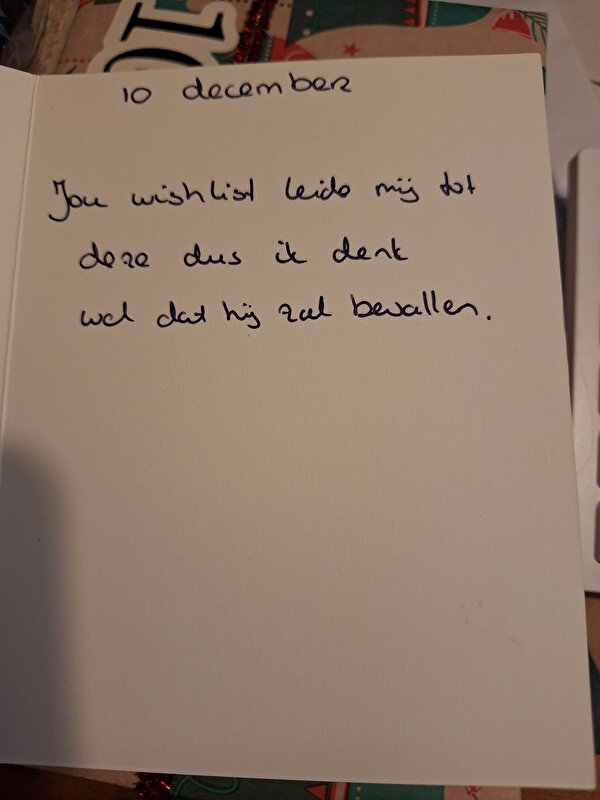 10 december
Jou wishlist leide mij tot
deze dus ik denk
wel dat hij zal bevallen.